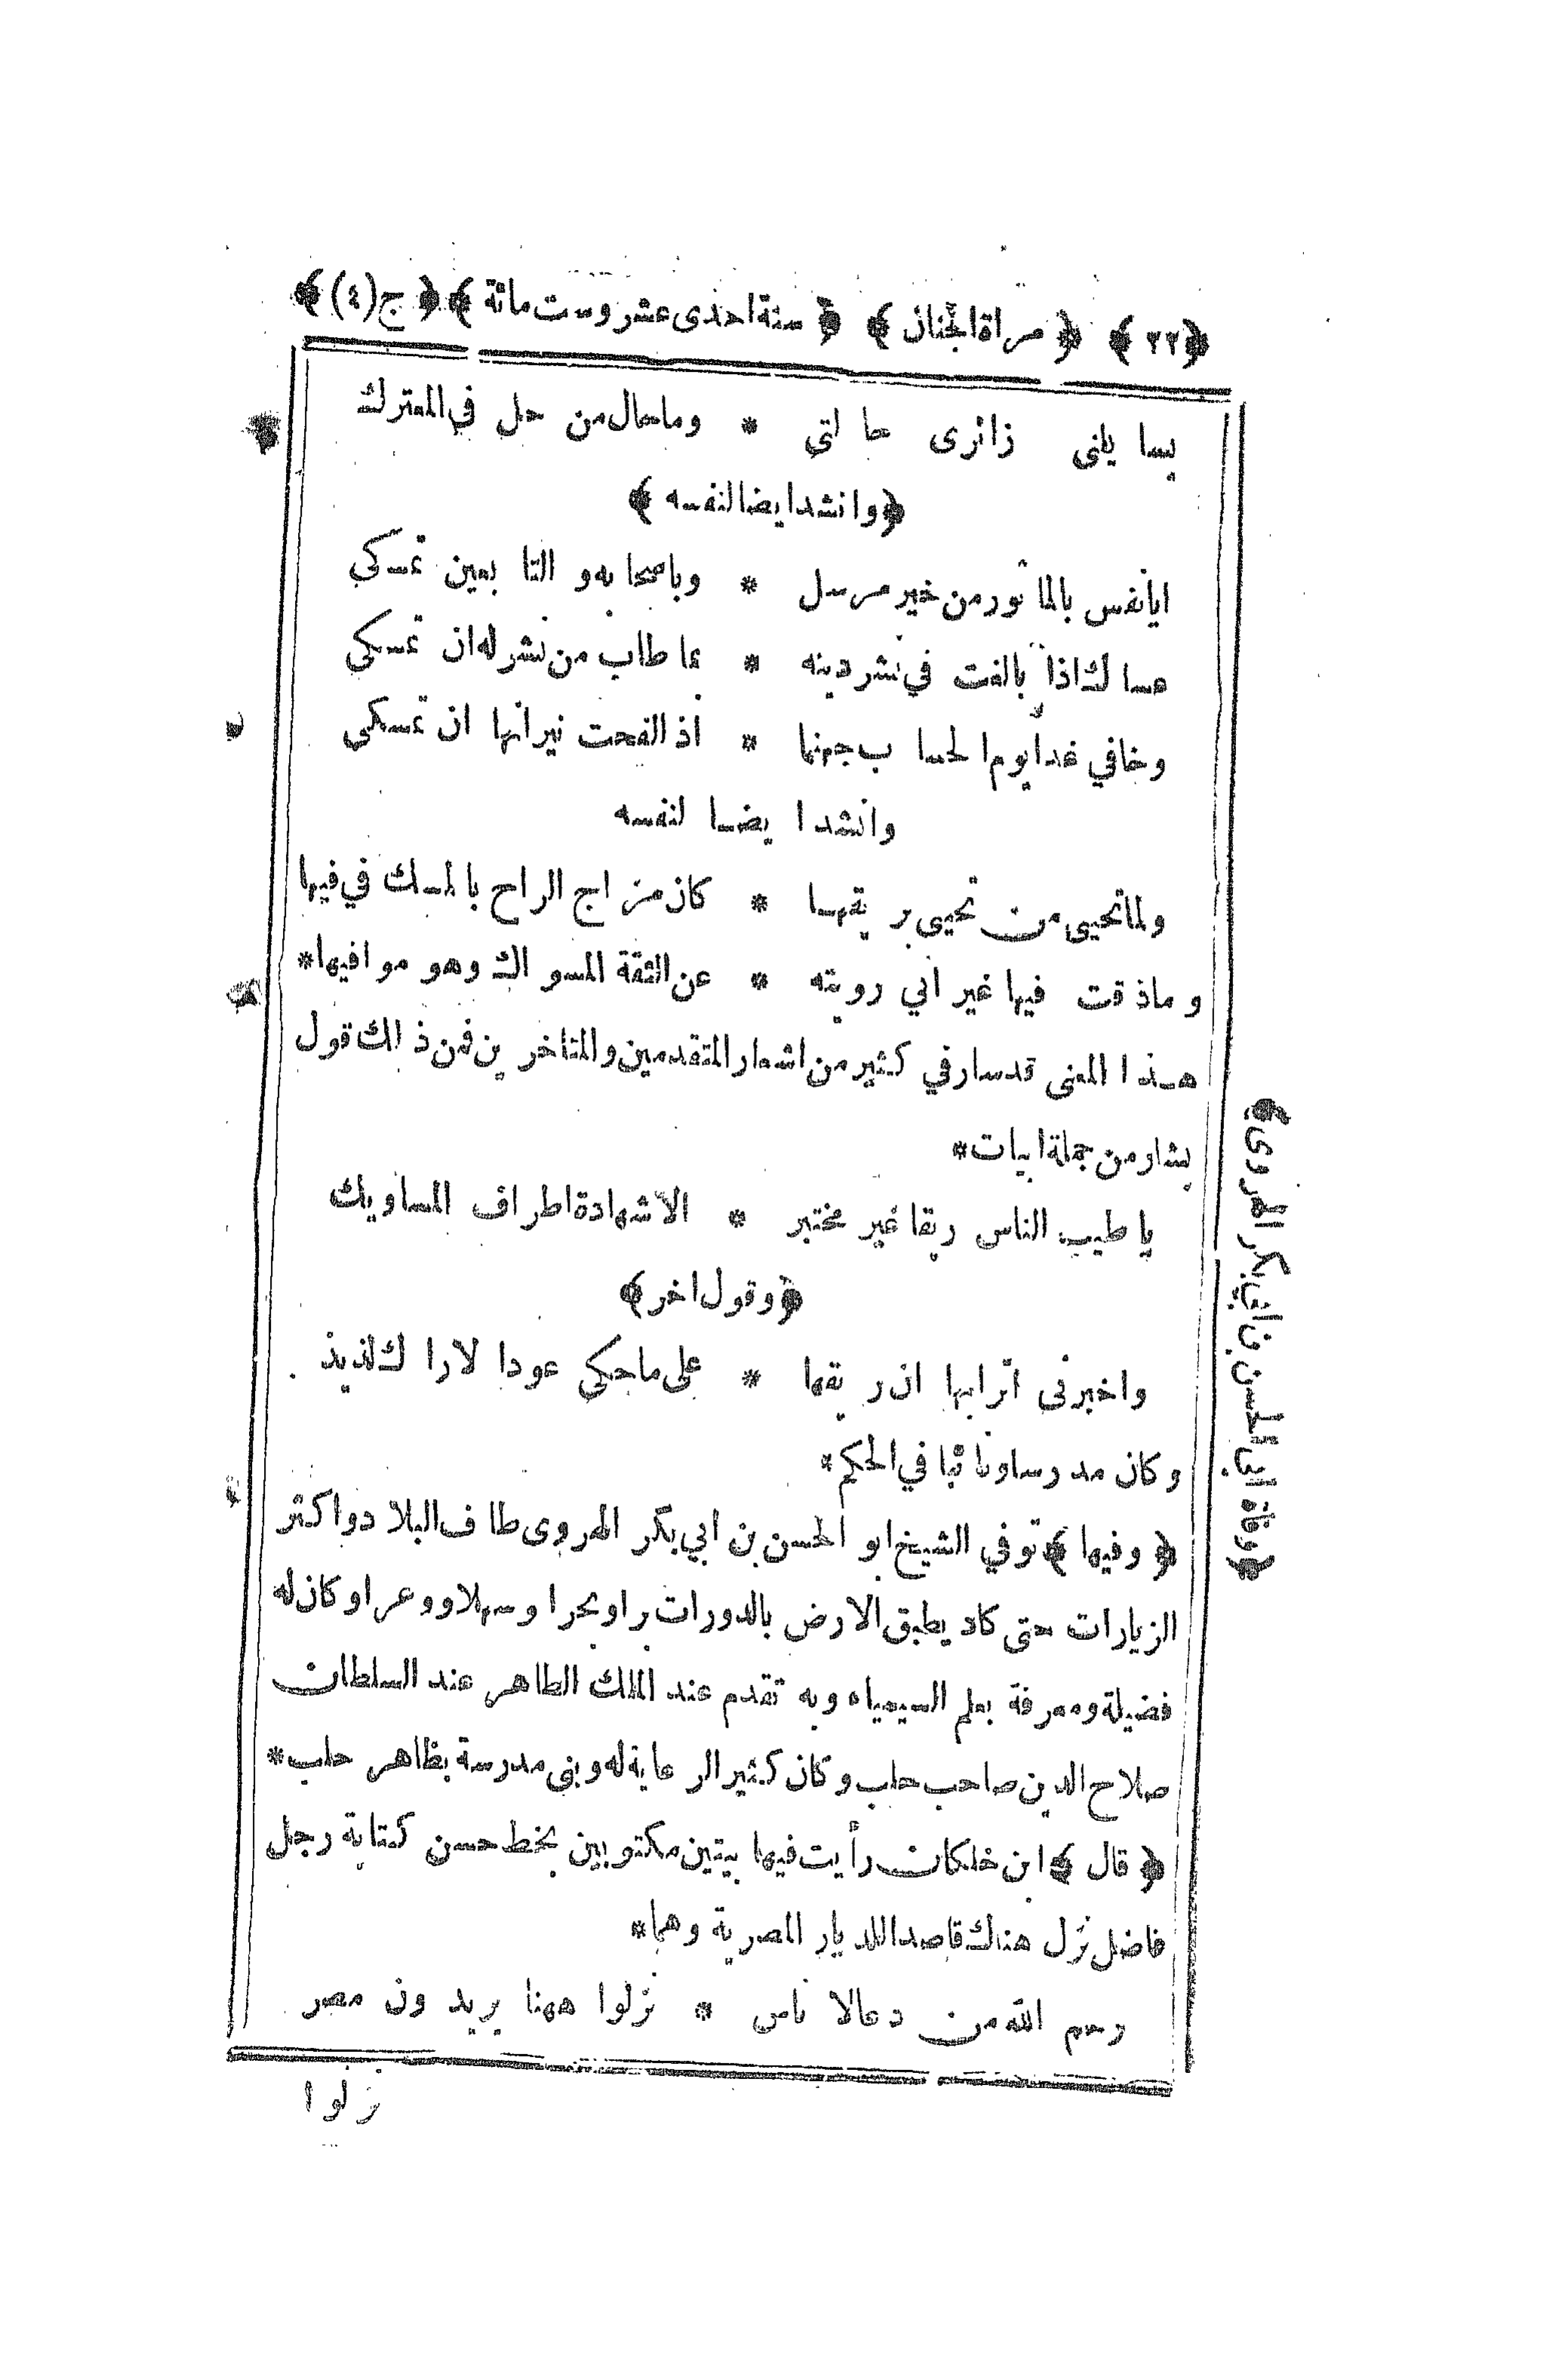 ﴿٢٢﴾ ﴿مراة الجنان﴾ ﴿سنة احدى عشر وست مائة﴾ ﴿ج(٤)﴾
يسا يلنى زائرى حا لتي * وما حال من حل في المعترك
﴿وانشد ايضا لنفسه﴾
ايا نفس بالما ثور من خير مرسل * وباصحا به و التا بعين تمسكي
عسا ك اذا بالغت في نشر دينه * بما طاب من نشر له ان تمسكي
وخافي غدا يوم الحسا ب جهنما * اذ الفحت نيرانها ان تمسكي
وانشد ا يضا لنفسه
ولما تحيى من تحيى بر يقها * كان مزاج الراح بالمسك في فيها
وما ذقت فيها غير اني رويته * عن الثقة المسواك وهو موافيها*
هذا المعنى قد سار في كثير من اشعار المتقدمين والمتاخرين فمن ذلك قول
بشار من جملة ابيات*
يا طيب الناس ريقا غير مختبر * الا شهادة اطراف المساويك
﴿وقول اخر﴾
واخبرنى اترابها ان ريقها * على ما حكى عودا لارا ك لذيذ
وكان مدرسا ونائبا في الحكم*
﴿وفيها﴾ توفي الشيخ ابو الحسن بن ابي بكر الهروى طاف البلاد واكثر
الزيارات حتى كاد يطبق الارض بالدورات برا وبحرا وسهلا ووعرا وكان له
فضيلة ومعرفة بعلم السيمياء وبه تقدم عند الملك الظاهر عند السلطان
صلاح الدين صاحب حلب وكان كثير الرعاية له وبنى مدرسة بظاهر حلب*
﴿قال﴾ ابن خلكان رأيت فيها بيتين مكتوبين بخط حسن كتابة رجل
فاضل نزل هناك قاصدا للديار المصرية وهما*
رحم الله من دعا لا ناس * نزلوا ههنا يريدون مصر
نزلوا
﴿وفاة ابى الحسن بن ابي بكر الهروى﴾